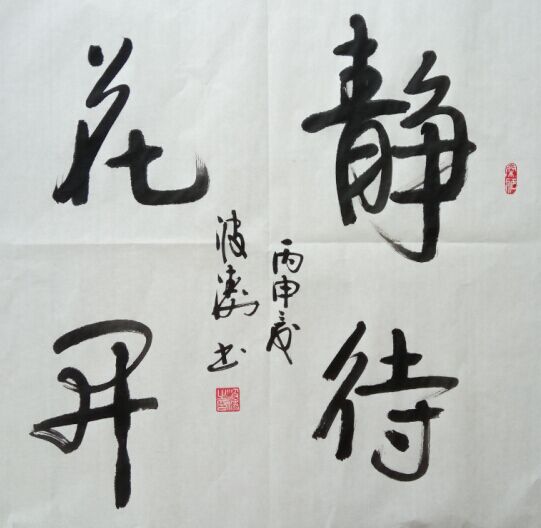 静待
花开
丙申夏
波涛书